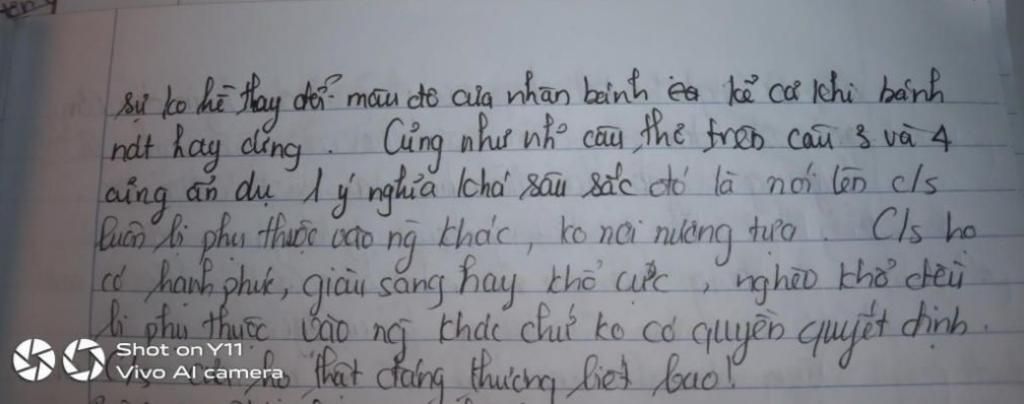 sự ko hề thay đổi màu đỏ của nhân bánh kể cả khi bánh
nát hay cứng. Cũng như nh~ câu thơ trên câu 3 và 4
cũng ẩn dụ 1 ý nghĩa khá sâu sắc đó là nói lên c/s
luôn bị phụ thuộc vào ng khác, ko nơi nương tựa. C/s họ
có hạnh phúc, giàu sang hay khổ cực, nghèo khổ đều
bị phụ thuộc vào ng khác chứ ko có quyền quyết định.
họ thật đáng thương biết bao!
Shot on Y11
Vivo AI camera